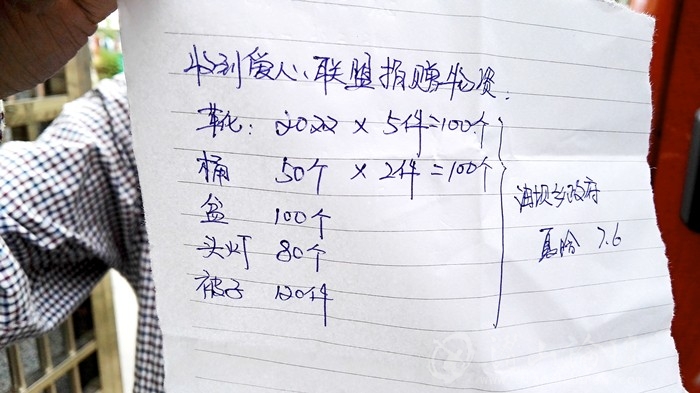 收到爱心联盟捐赠物资:
靴: 20双 × 5件=100个
桶 50个 × 2件=100个
盆 100个
头灯 80个
被子 120件
海坝乡政府
7.6